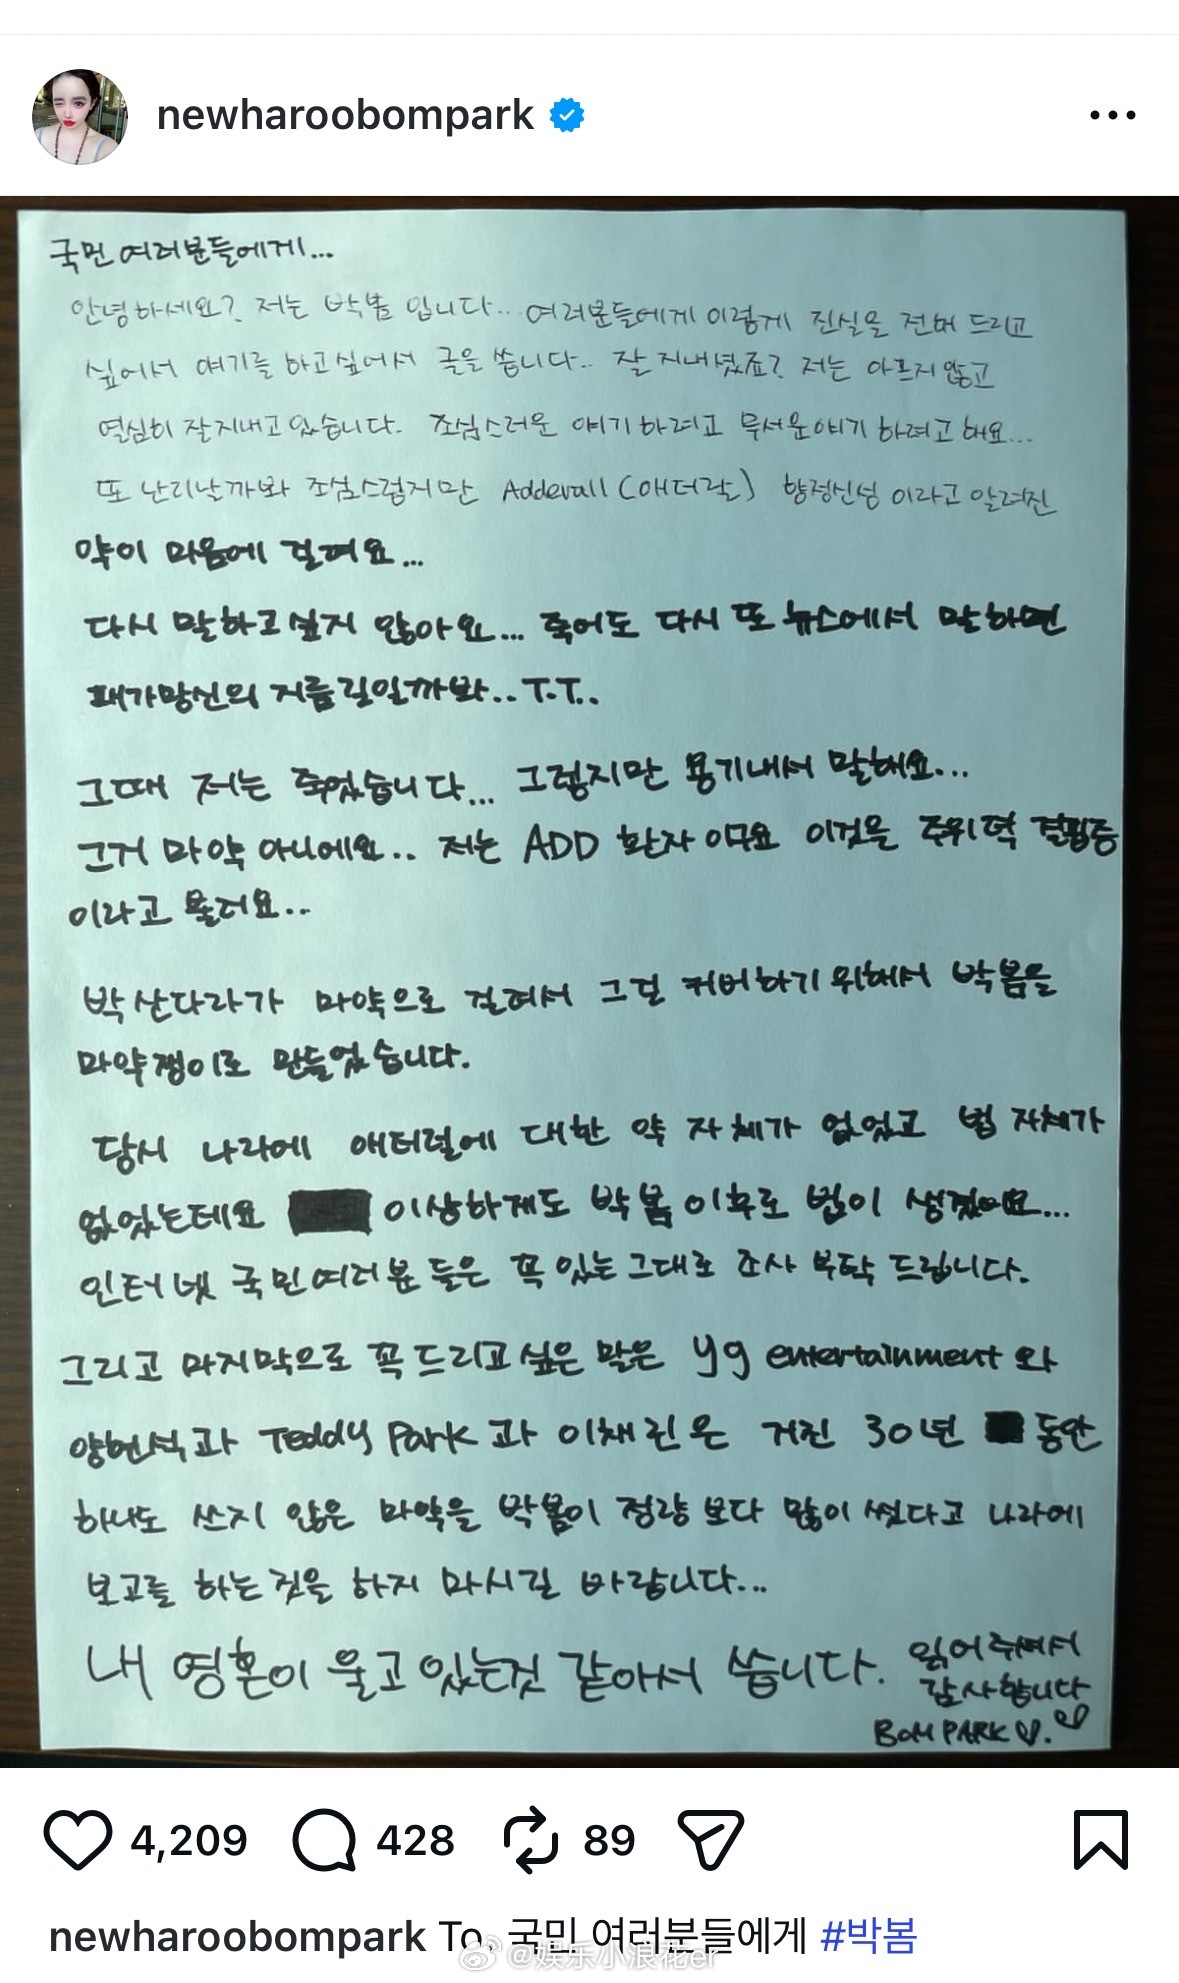 newharoobompark
국민 여러분들에게...
안녕하세요? 저는 박봄 입니다... 여러분들에게 이렇게 진실을 전해 드리고
싶어서 얘기를 하고싶어서 글을 씁니다.. 잘 지내셨죠? 저는 아프지않고
열심히 잘지내고있습니다. 조심스러운 얘기하려고 무서운얘기 하려고 해요...
또 난리날까봐 조심스럽지만 Adderall (애더랄) 향정신성 이라고 알려진
약이 마음에 걸려요...
다시 말하고싶지 않아요... 죽어도 다시 또 뉴스에서 말하면
패가망신의 지름길일까봐.. T.T..
그때 저는 죽었습니다... 그렇지만 용기내서 말해요...
그거 마약 아니에요.. 저는 ADD 환자 이구요 이것은 주위력 결핍증
이라고 불러요..
박산다라가 마약으로 걸려서 그걸 커버하기 위해서 박봄을
마약쟁이로 만들었습니다.
당시 나라에 애터럴에 대한 약 자체가 없었고 법 자체가
없었는데요 이상하게도 박봄 이후로 법이 생겼어요...
인터넷 국민여러분 들은 꼭 있는그대로 조사 부탁 드립니다.
그리고 마지막으로 꼭 드리고싶은 말은 yg entertainment 와
양현석과 Teddy Park 과 이채린은 거진 30년 동안
하나도 쓰지 않은 마약을 박봄이 정량 보다 많이 썼다고 나라에
보고를 하는것을 하지 마시길 바랍니다...
내 영혼이 울고있는것 같아서 씁니다. 읽어주셔서
감사합니다
BOM PARK♡.♡
4,209 428 89
newharoobompark To, 국민 여러분들에게 #박봄
@娱乐小浪花er